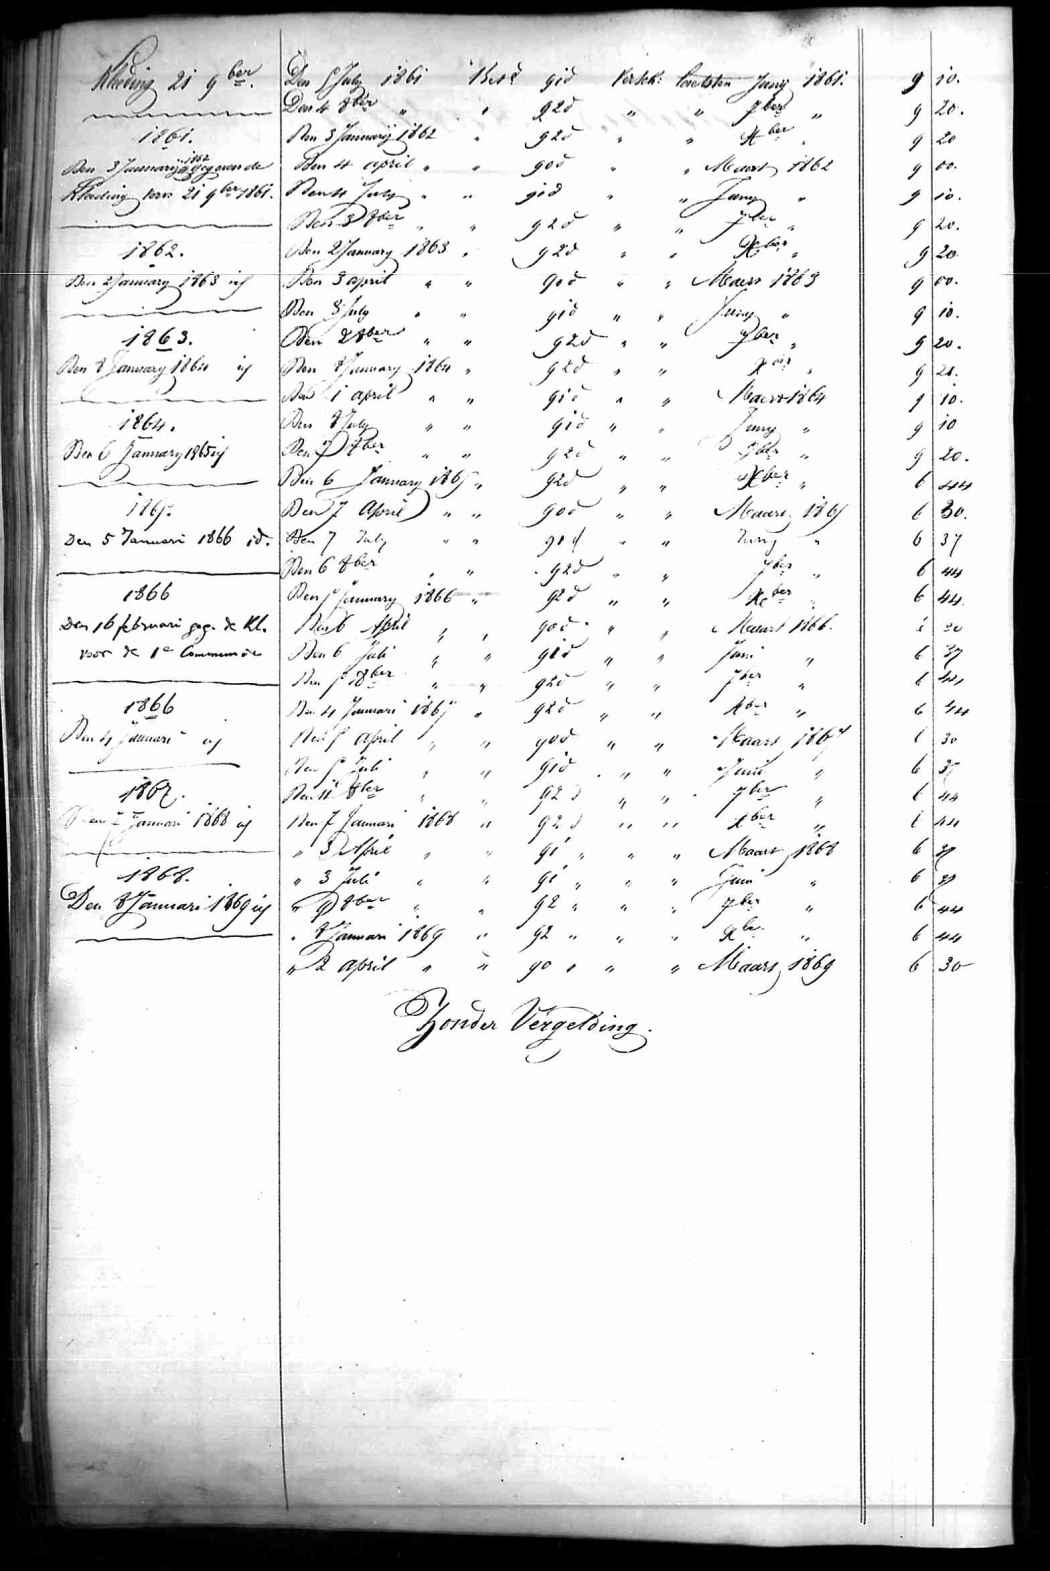 Kleeding 21 9ber.
1861.
Den 3 January 1862 gegeven de
Kleeding van 21 9ber 1861.
1862.
Den 2 January 1863 id
1863.
Den 8 January 1864 id
1864.
Den 6 January 1865 id
1865.
Den 5 Januari 1866 id.
1866
Den 16 februari geg. de Kl.
voor de 1e Communie
1866
Den 4 Januari id
1867.
Januari 1868 id
1868.
Den 8 Januari 1869 id
Den 5 July 1861 Betd 91d Verkl: laetsten Juny 1861. 9 10.
Den 4 8ber " " 92d " " 7ber " 9 20.
Den 3 January 1862 " 92d " " Xber " 9 20
Den 4 april " " 90d " " Maart 1862 9 00.
Den 4 July " " 91d " " Juny " 9 10.
Den 3 8ber " " 92d " " 7ber " 9 20.
Den 2 January 1863 " 92d " " Xber " 9 20
Den 3 april " " 90d " " Maart 1863 9 00.
Den 3 July " " 91d " " Juny " 9 10.
Den 2 8ber " " 92d " " 7ber " 9 20.
Den 8 January 1864 " 92d " " Xber " 9 20.
Den 1 april " " 91d " " Maart 1864 9 10.
Den 8 July " " 91d " " Juny " 9 10
Den 7 8ber " " 92d " " 7ber " 9 20.
Den 6 January 1865 " 92d " " Xber " 6 44
Den 7 April " " 90d " " Maart 1865 6 30.
Den 7 July " " 91d " " Juny " 6 37
Den 6 8ber " " 92d " " 7ber " 6 44
Den 5 January 1866 " 92d " " Xber " 6 44
Den 6 April " " 90d " " Maart 1866. 6 30
Den 6 Juli " " 91d " " Juni " 6 37
Den 5 8ber " " 92d " " 7ber " 6 44
Den 4 Januari 1867 " 92d " " Xber " 6 44
Den 5 April " " 90d " " Maart 1867 6 30
Den 5 Juli " " 91d " " Juni " 6 37
Den 4 8ber " " 92d " " 7ber " 6 44
Den 7 Januari 1868 " 92d " " Xber " 6 44
" 3 April " " 91 " " " Maart 1868 6 37
" 3 Juli " " 91 " " " Juni " 6 37
" 9 8ber " " 92 " " " 7ber " 6 44
" 8 Januari 1869 " 92 " " " Xber " 6 44
" 2 april " " 90 " " " Maart 1869 6 30
Zonder Vergelding.